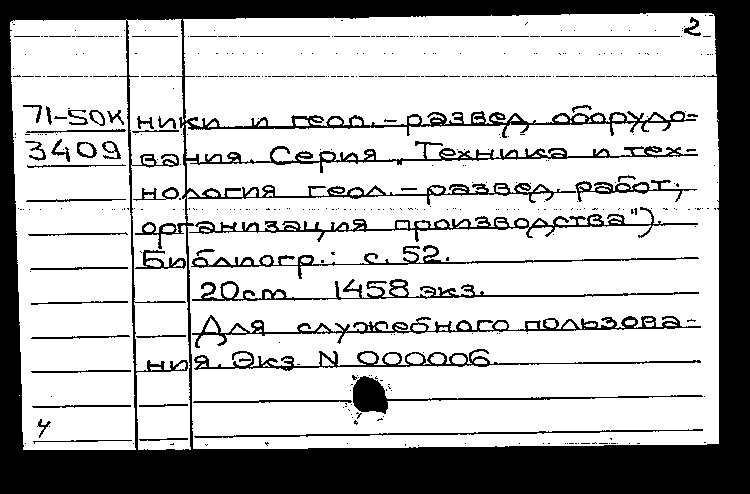 2
71-50к ники и геол.-развед. оборудо=
3409 вания. Серия „Техника и тех=
нология геол.-развед. работ;
организация производства").
Библиогр.: с. 52.
20см. 1458 экз.
Для служебного пользова-
ния. Экз. N 000006.
4